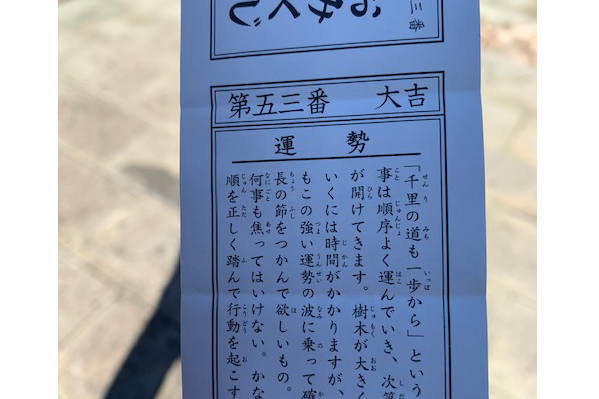 おみくじ
三番
第五三番 大吉
運勢
「千里の道も一歩から」という
事は順序よく運んでいき、次第
が開けてきます。樹木が大きく
いくには時間がかかりますが、
もこの強い運勢の波に乗って確
長の節をつかんで欲しいもの。
何事も焦ってはいけない。かな
順を正しく踏んで行動を起こす